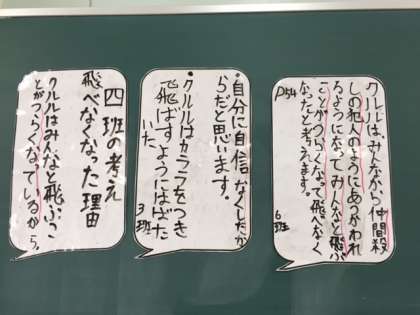 クルルは、みんなから仲間殺
しの犯人のようにあつかわれ
るようになってみんなと飛ぶ
ことがつらくなって飛べなく
なったと考えます。
P54
6班
・自分に自信なくしたか
らだと思います。
・クルルはカララをつき
飛ばすようにはばた
いた
3班
四班の考え
飛べなくなった理由
クルルはみんなと飛ぶこ
とがつらくなっているから。